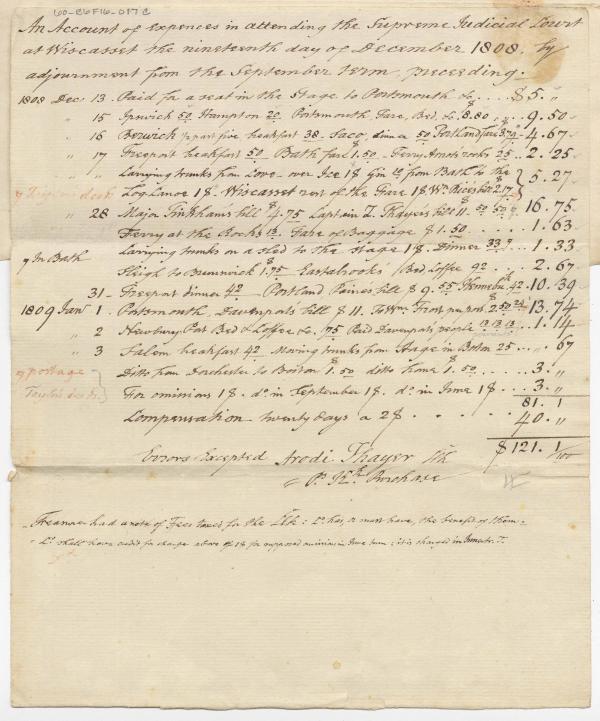 60-C6F16-017C
An Account of expences in attending the Supreme Judicial Court
at Wiscasset the nineteenth day of December 1808. by
adjournment from the September term, preceeding.
1808 Dec: 13 Paid for a seat in the Stage to Portsmouth &c. $5. "
" 15 Ipswich 50. Hampton 20. Portsmouth, Fare, Bed &c 8.80 9.50
" 16 Berwick breakfast 38. Saco, dinner 50 Portland fare 4.67
" 17 Freeport breakfast 50. Bath fare $1.50. Ferry 25 2.25
" Carrying trunks from over Ice 1$ from Bath to the
5.27
1$. Wiscasset rest of the Fare 1$ bill 2.17
" 28 Major Tinkham's bill $4.75 Captain Thayer's bill 11.50 16.75
Ferry at the Rocks 13. Fare of Baggage $1.50 1.63
In Bath Carrying trunks on a sled to the stage 1$. Dinner 33 1.33
Sleigh to Brunswick 1.75 Eastabrooks Bed Coffee 92 2.67
31 Freeport dinner 42 Portland Paines bill $9.55 Kennebunk 42 10.39
1809 Jan'y 1 Portsmouth, Davenports bill $11. 2.50 24 13.74
" 2 Newbury Port Bed & Coffee &c. 75 Paid Davenports people 13.13.13 1.14
" 3 Salem breakfast 42 Moving trunks from Stage in Boston 25 ". 67
postage Ditto from Dorchester to Boston $1.50 ditto home $1.50 3. "
For omissions 1$. do. in September 1$. do. in June 1$ 3. "
81. 1
Compensation twenty days a 2$ 40. "
$121. 1/100
Errors Excepted Arodi Thayer
Purchase
Treasurer had a note of Fees taxes for the Clk: Co. has, or must have, the benefit of them.
Co. shall have credit for charge above of 1$ for supposed omission in June term: it is charged in